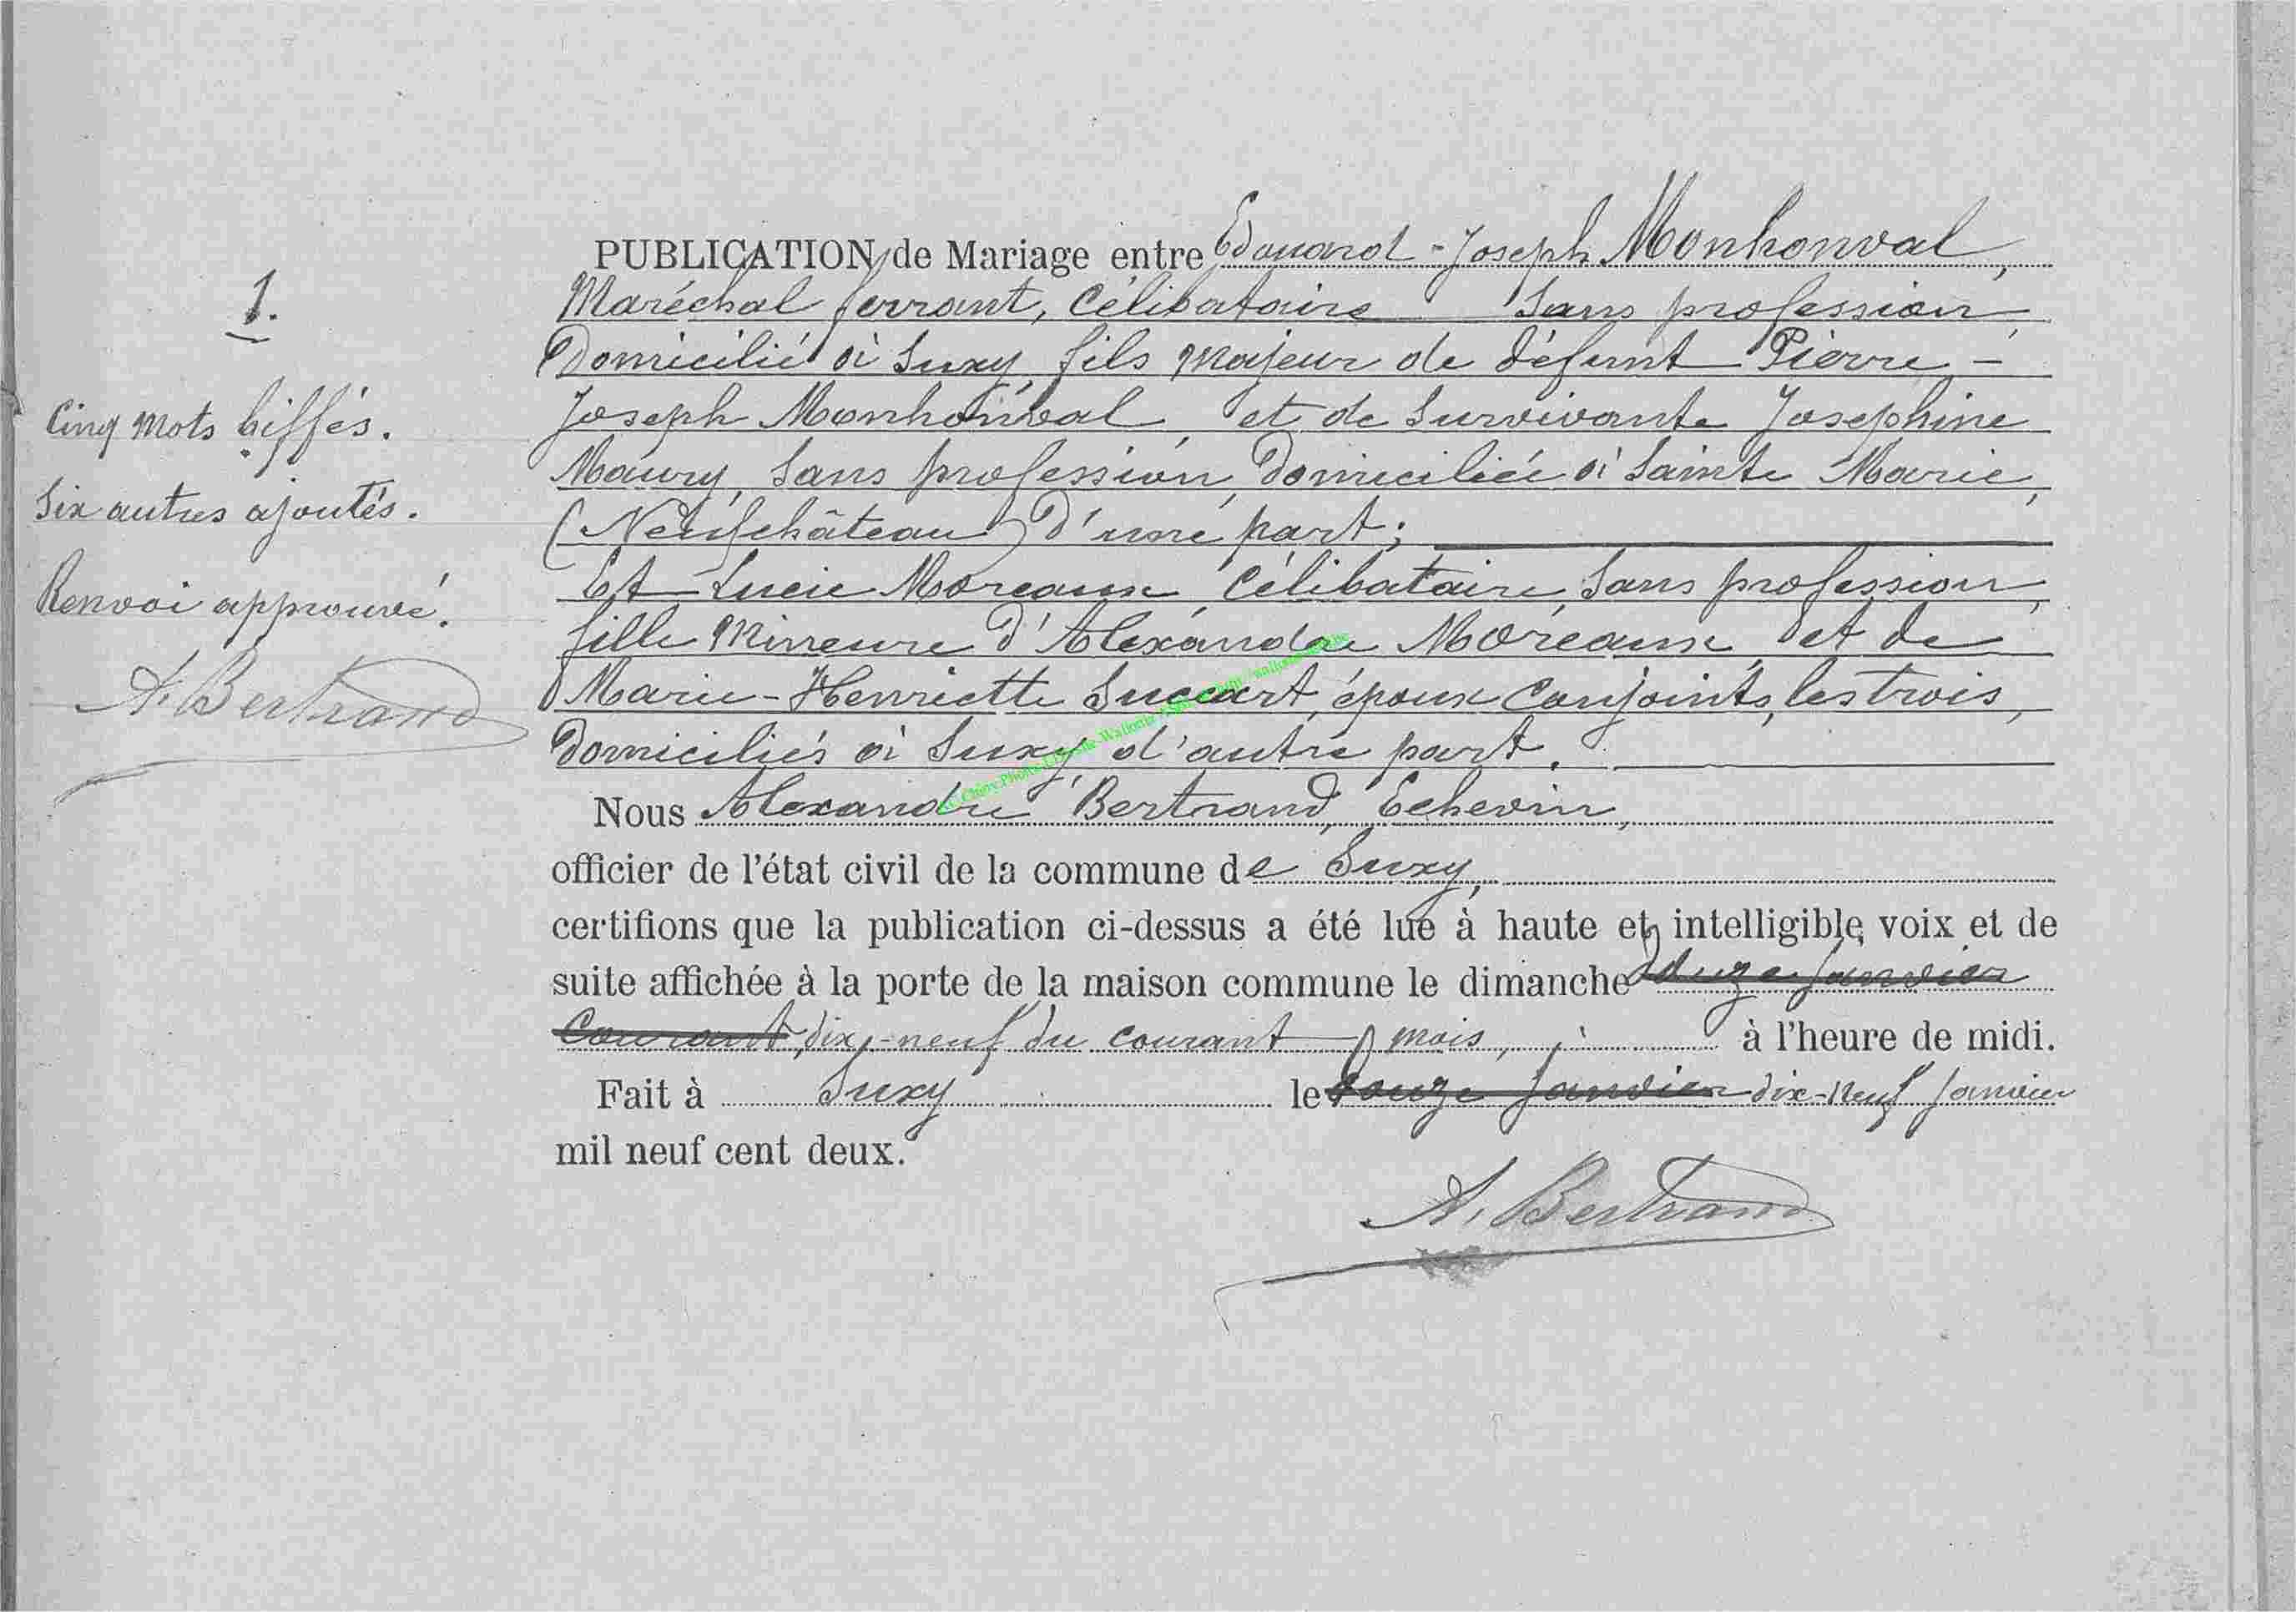 1.
Cinq mots biffés.
Six autres ajoutés.
Renvoi approuvé.
A. Bertrand
PUBLICATION de Mariage entre Edouard-Joseph Monhonval,
Maréchal ferrant, Célibataire Sans profession,
Domicilié à Suxy, fils Majeur de défunt Pierre-
Joseph Monhonval, et de Survivante Josephine
Maury, Sans profession, Domiciliée à Sainte Marie,
(Neufchâteau) D'une part;
Et Lucie Moreaux, Célibataire, Sans profession,
fille Mineure d'Alexandre Moreaux, et de
Marie-Henriette Succart, époux Conjoints, les trois,
Domiciliés à Suxy, d'autre part.
Nous Alexandre Bertrand, Echevin,
officier de l'état civil de la commune de Suxy,
certifions que la publication ci-dessus a été lue à haute et intelligible voix et de
suite affichée à la porte de la maison commune le dimanche douze Janvier
Courant, dix-neuf du courant mois, à l'heure de midi.
Fait à Suxy le douze Janvier dix-Neuf Janvier
mil neuf cent deux.
A. Bertrand